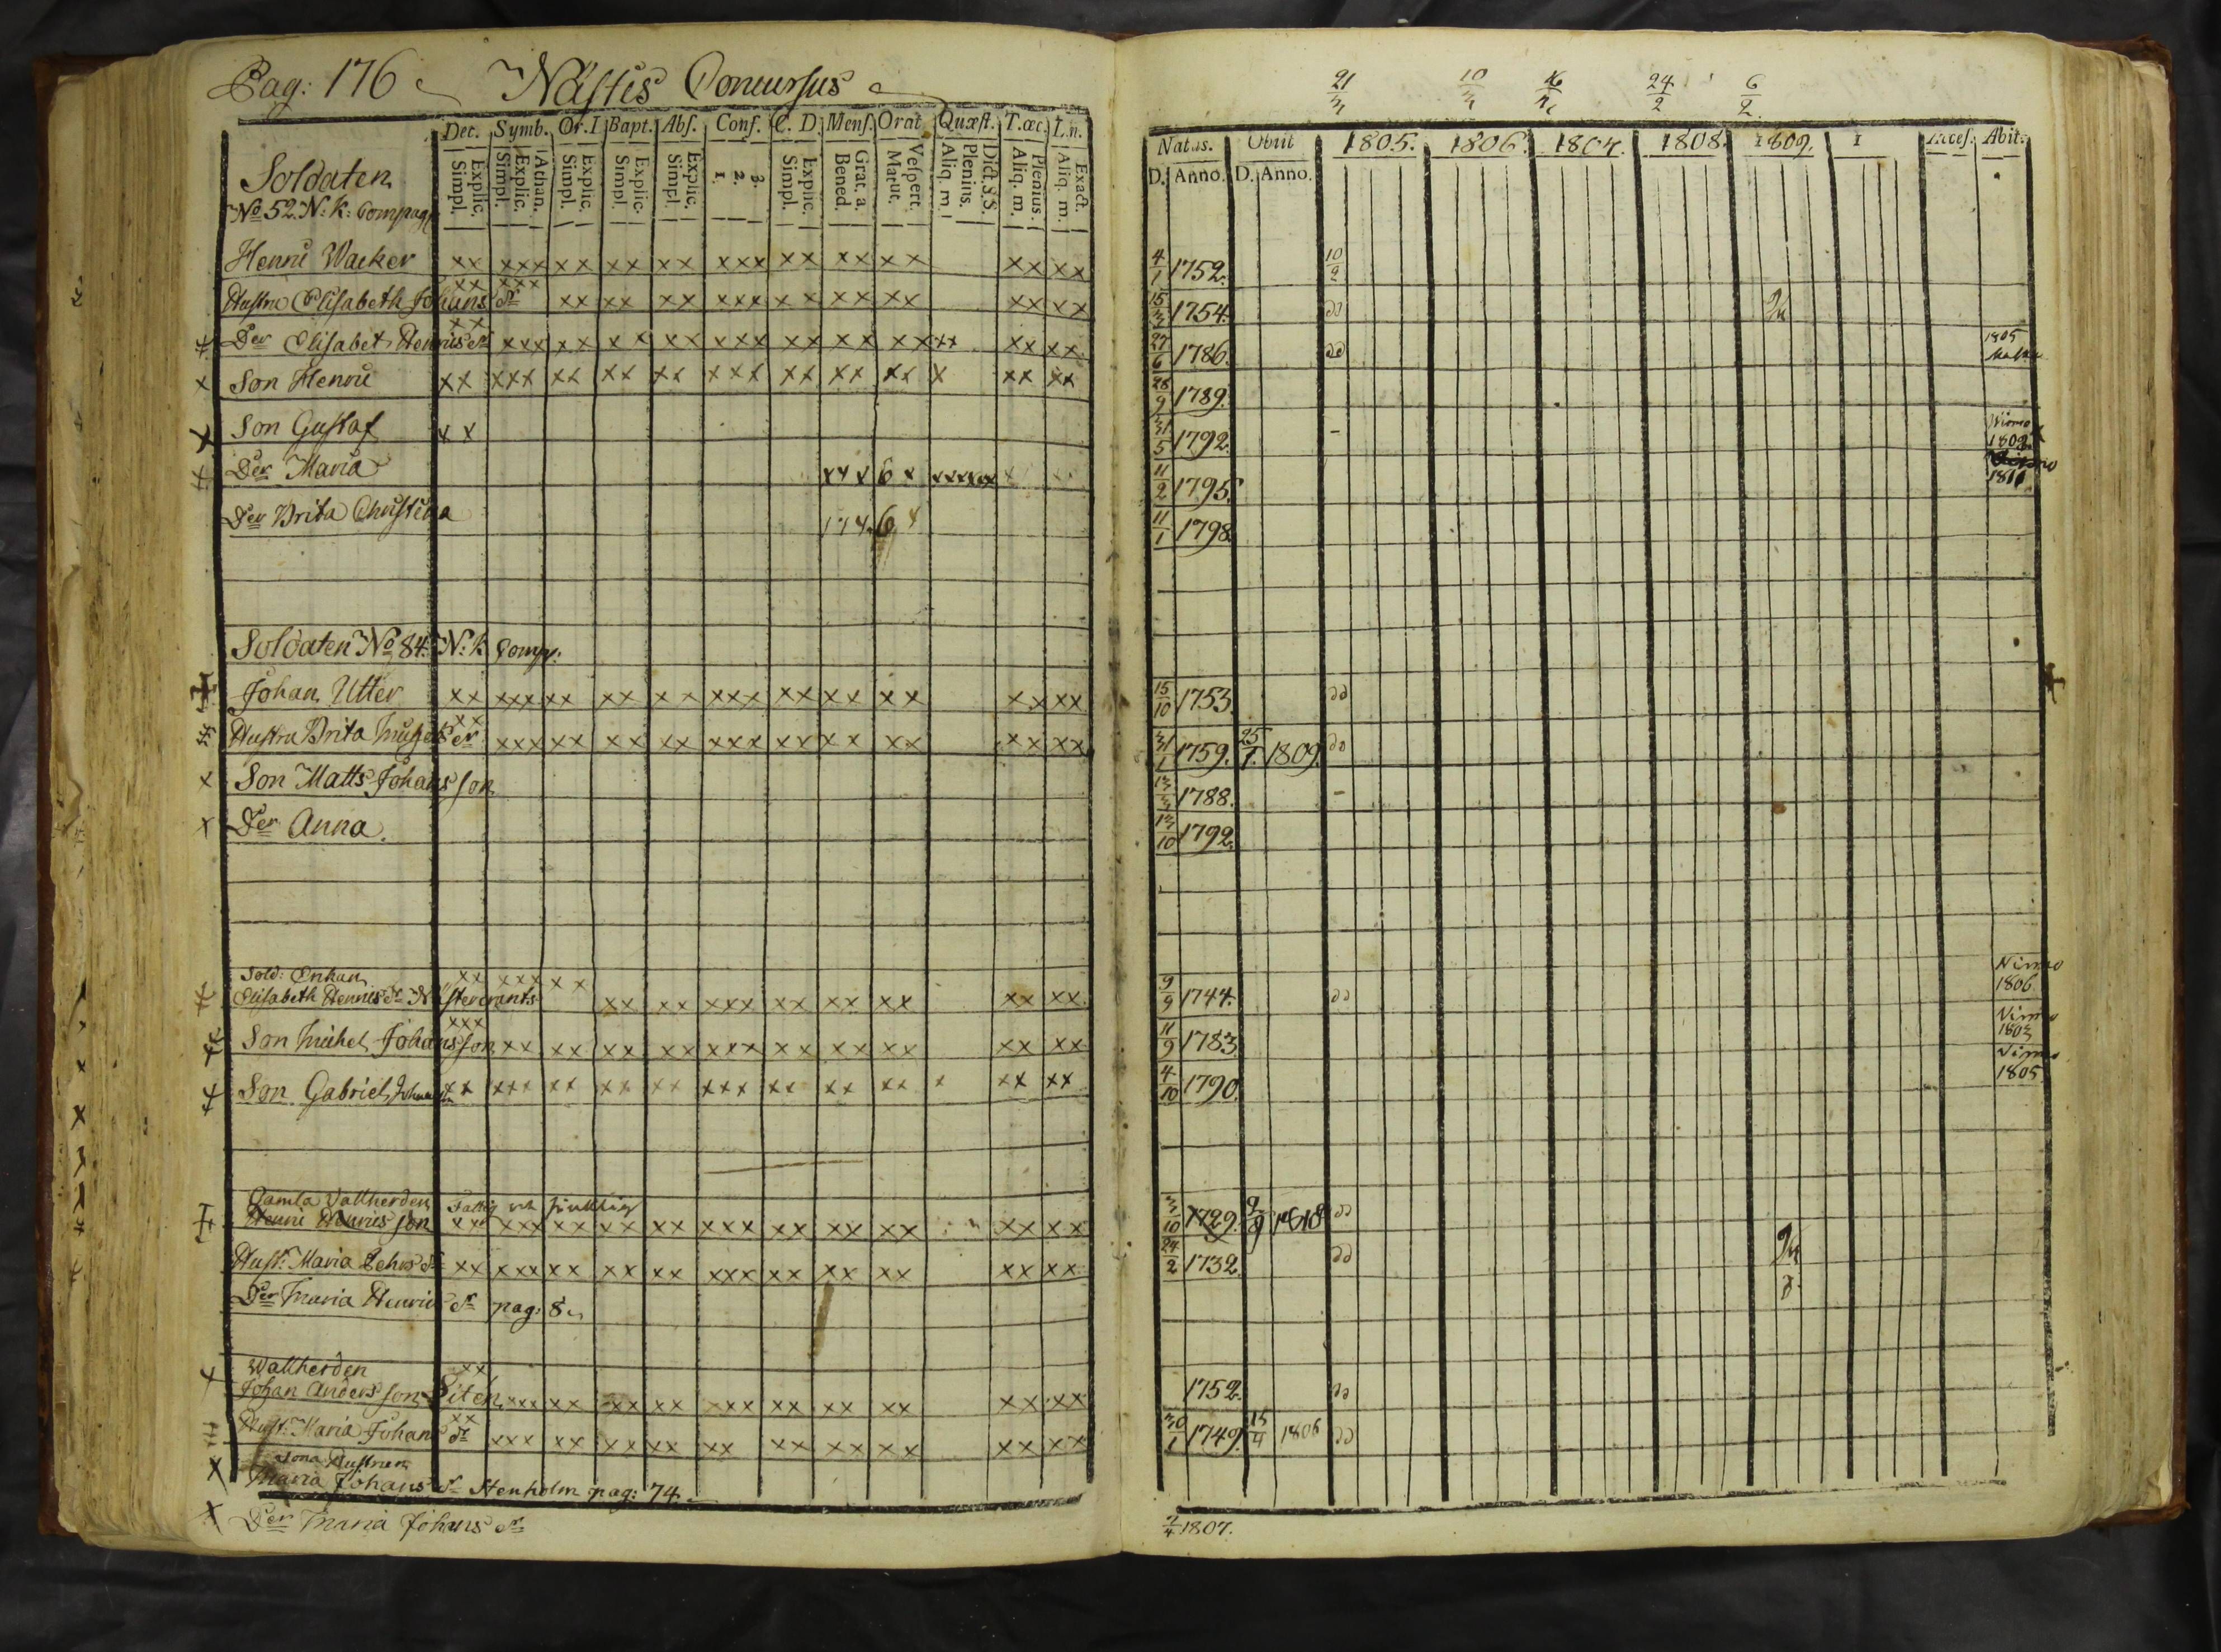 Pag: 176 Nästis Concursus
Dec. Symb. Or. I Bapt. Abs. Conf. C. D. Mens. Orat. Quæst. T.œc. L.n.
Explic. Simpl. Athan. Explic. Simpl. Explic. Simpl. Explic. Simpl. Explic. Simpl. 3. 2. 1. Explic. Simpl. Grat. a. Bened. Vespert. Matut. Dict. S.S. Plenius. Aliq. m. Plenius. Aliq. m. Exact. Aliq. m.
Soldaten
No 52. N: K: Compag
Henric Wacker xx xxx xx xx xx xxx xx xx xx xx xx
xx xxx
Hustru Elisabeth Johans dr xx xx xx xxx xx xx xx xx xx
xx
Der Elisabet Henrics dr xxx xx xx xx xxx xx xx xx xx xx xx
x Son Henric xx xxx xx xx xx xxx xx xx xx x xx xx
x Son Gustaf xx
Der Maria xx x 6 x xxxxxx
Der Brita Christina
Soldaten No 84. N: k Comp:
Johan Utter xx xxx xx xx xx xxx xx xx xx xx xx
xx
Hustru Brita Michels dr xxx xx xx xx xxx xx xx xx xx xx
x Son Matts Johans son
x Der Anna
Sold: Enkan xx xxx xx
Elisabeth Henrics dr xx xx xxx xx xx xx xx xx
xxx
Son Michel Johansson xx xx xx xx xxx xx xx xx xx xx
Son Gabriel Johansson xx xxx xx xx xx xxx xx xx xx x xx xx
Gamla Vallherden Fattig och siuklig
Henric Henrics son xx xxx xx xx xx xxx xx xx xx xx xx
Hust: Maria dr xx xxx xx xx xx xxx xx xx xx xx xx
Der Maria Henrics dr pag: 8
Wallherden xx
Johan Anders son Liten xxx xx xx xx xxx xx xx xx xx xx
xx
Hust: Maria Johans dr xxx xx xx xx xx xx xx xx xx xx
x Sona Hustrun
Maria Johans dr Stenholm pag: 74
x Der Maria Johans dr
21/3 10/3 24/2 6/2
Natus. Obiit 1805. 1806. 1807. 1808. 1809. 1 Acces. Abit.
D. Anno. D. Anno.
4/1 1752. 10/2
15/3 1754.
27/6 1786. 1805
28/9 1789.
31/5 1792. - Wirmo 1809
11/2 1795. 1811
11/1 1798.
15/10 1753.
31/1 1759. 25/1 1809.
13/3 1788. -
13/10 1792.
9/9 1744. Virmo 1806
11/9 1783. Virmo 1803
4/10 1790. Virmo 1805
3/10 1729. 9/9
24/2 1732.
1752.
30/1 1749. 15/4 1806
2/4 1807.